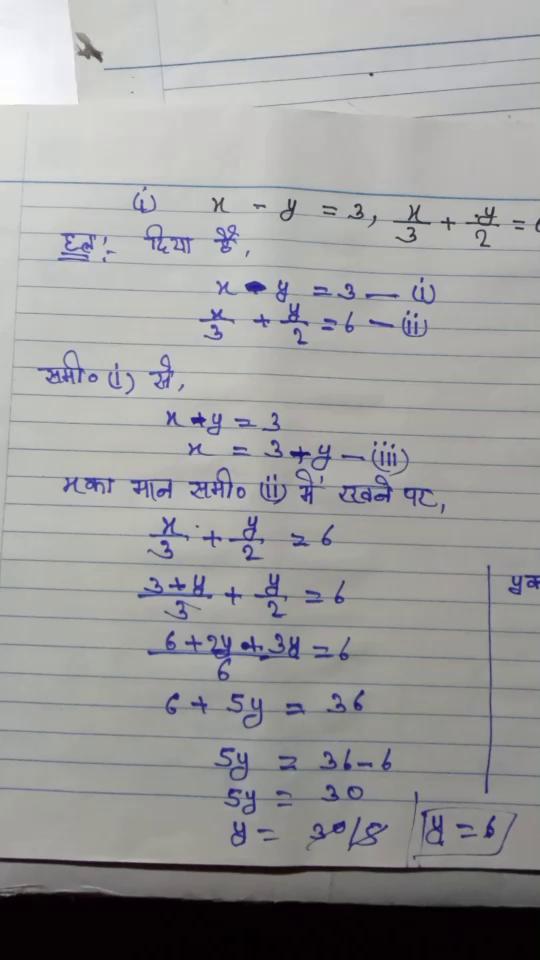 (i) x - y = 3, x/3 + y/2 = 6
हल:- दिया है,
x - y = 3 — (i)
x/3 + y/2 = 6 — (ii)
समी० (i) से,
x - y = 3
x = 3 + y — (iii)
x का मान समी० (ii) में रखने पर,
x/3 + y/2 = 6
3+y/3 + y/2 = 6
6 + 2y + 3y/6 = 6
6 + 5y = 36
5y = 36 - 6
5y = 30
y = 30/5 y = 6